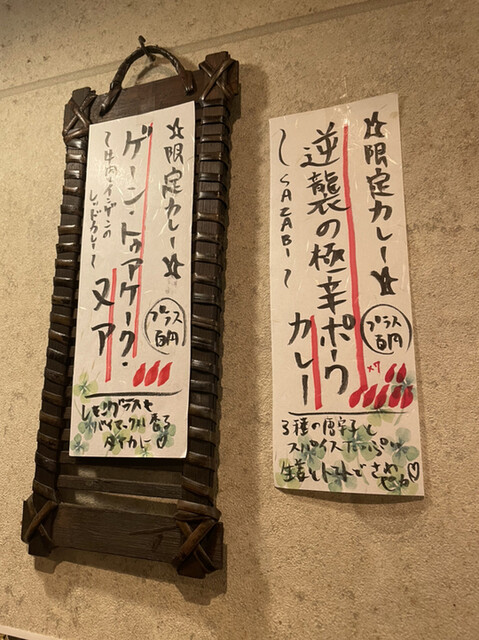 ☆限定カレー☆
逆襲の極辛ポーク
カレー
～SAZABI～
プラス
百円
×7
3種の唐辛子と
スパイスたっぷり
生姜とトマトでさわやか♡
☆限定カレー☆
ゲーン・トゥアケーク・
ヌア
～牛肉とインゲンの
レッドカレー～
プラス
百円
レモングラスも
バイマックルも香る
タイカレー♡